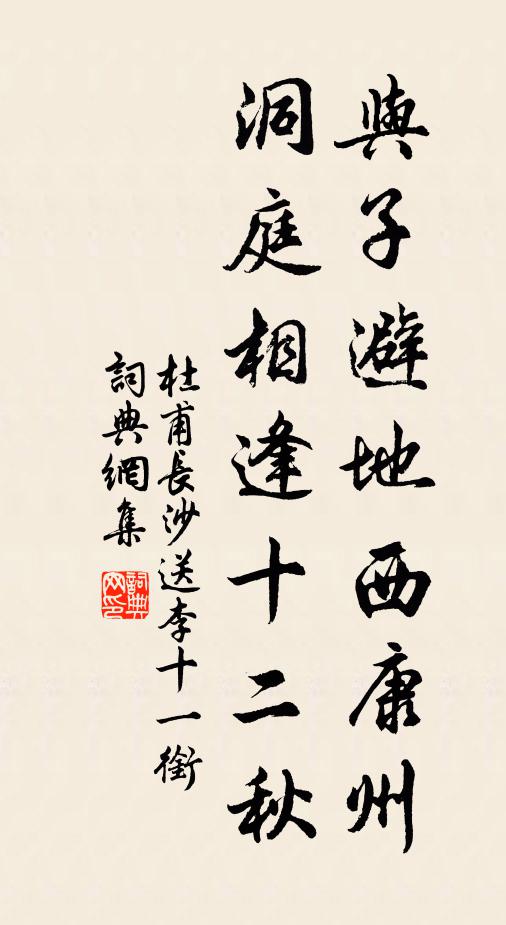 與子避地西康州
洞庭相逢十二秋
杜甫長沙送李十一銜
詞典網集
詞典网印